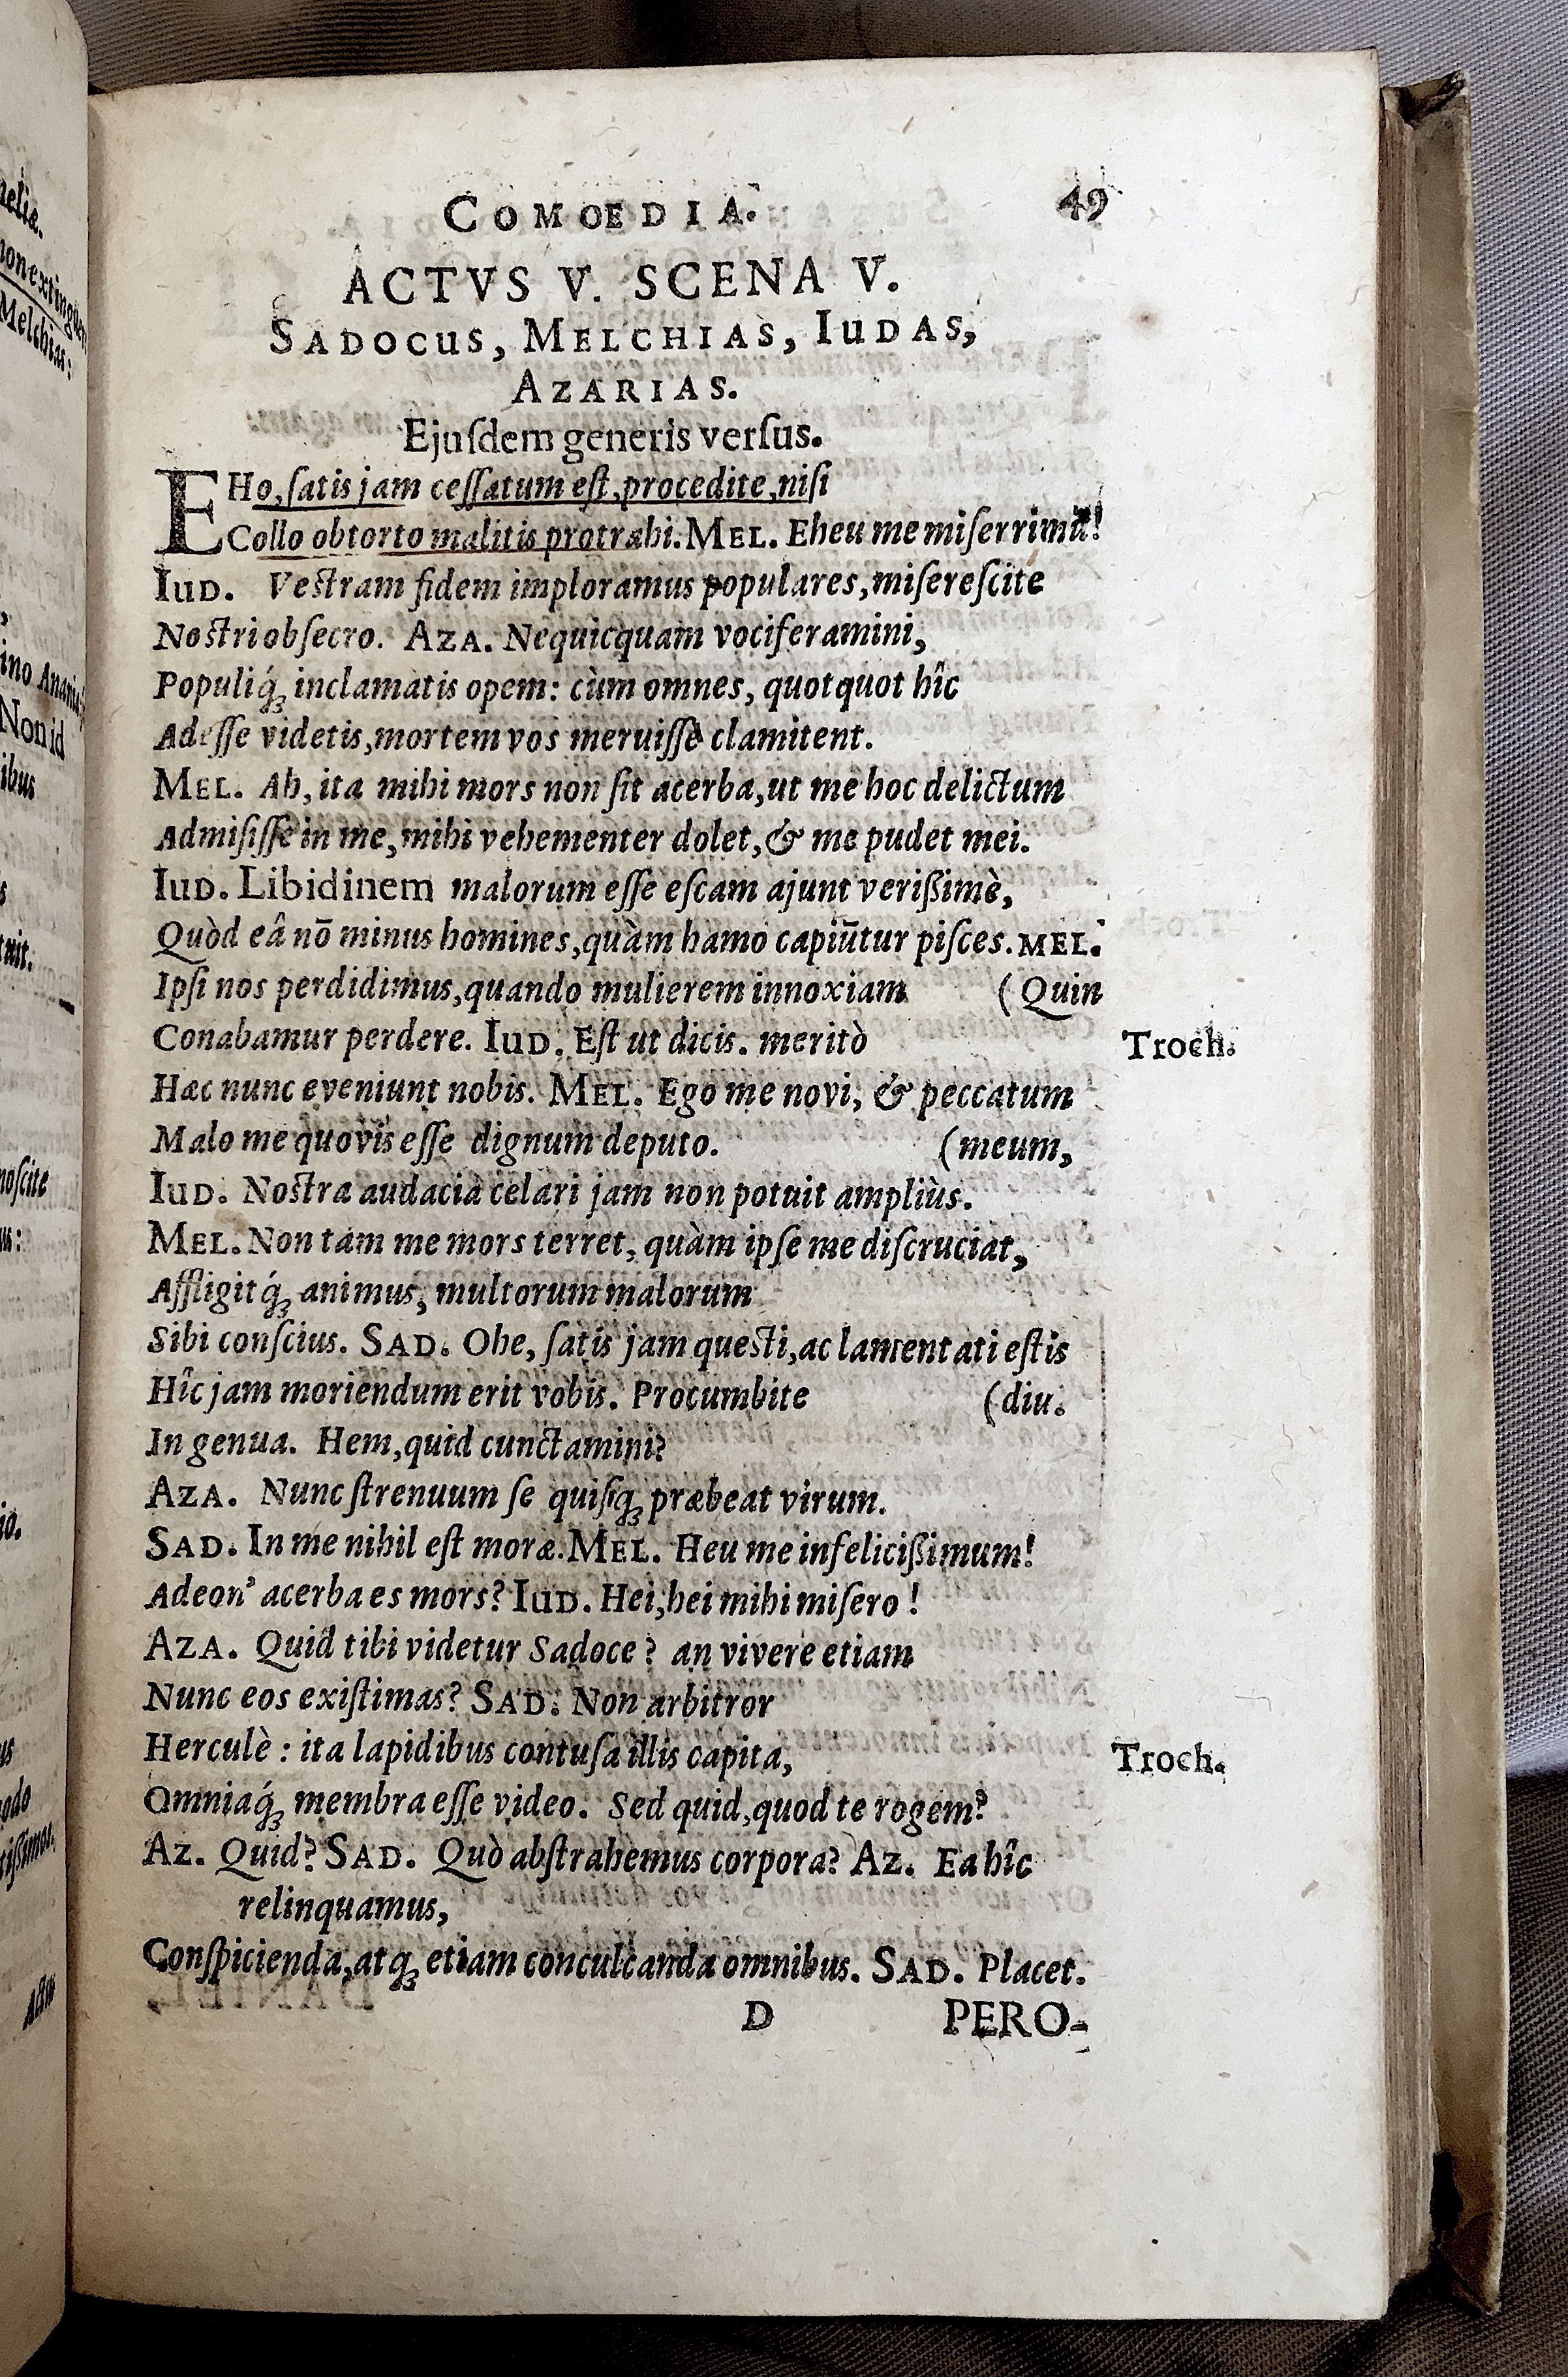 COMOEDIA. 49
ACTVS V. SCENA V.
SADOCUS, MELCHIAS, IUDAS,
AZARIAS.
Ejuſdem generis verſus.
EHo, ſatis jam ceſſatum eſt, procedite, niſi
Collo obtorto malitis protrahi. MEL. Eheu me miſerrimū!
IUD. Veſtram fidem imploramus populares, miſereſcite
Noſtri obſecro. AZA. Nequicquam vociferamini,
Populiq́; inclamatis opem: cùm omnes, quotquot hîc
Adeſſe videtis, mortem vos meruiſſe clamitent.
MEL. Ah, ita mihi mors non ſit acerba, ut me hoc delictum
Admiſiſſe in me, mihi vehementer dolet, & me pudet mei.
IUD. Libidinem malorum eſſe eſcam ajunt verißimè,
Quòd eâ nō minus homines, quàm hamo capiūtur piſces. MEL.
Ipſi nos perdidimus, quando mulierem innoxiam (Quin
Conabamur perdere. IUD. Eſt ut dicis. meritò Troch.
Hæc nunc eveniunt nobis. MEL. Ego me novi, & peccatum
Malo me quovis eſſe dignum deputo. (meum,
IUD. Noſtra audacia celari jam non potuit ampliùs.
MEL. Non tam me mors terret, quàm ipſe me diſcruciat,
Affligitq́; animus, multorum malorum
Sibi conſcius. SAD. Ohe, ſatis jam queſti, ac lamentati eſtis
Hîc jam moriendum erit vobis. Procumbite (diu.
In genua. Hem, quid cunctamini?
AZA. Nunc ſtrenuum ſe quiſq; præbeat virum.
SAD. In me nihil eſt moræ. MEL. Heu me infelicißimum!
Adeon' acerba es mors? IUD. Hei, hei mihi miſero!
AZA. Quid tibi videtur Sadoce? an vivere etiam
Nunc eos exiſtimas? SAD. Non arbitror
Herculè: ita lapidibus contuſa illis capita, Troch.
Omniaq́; membra eſſe video. Sed quid, quod te rogem?
AZ. Quid? SAD. Quò abſtrahemus corpora? AZ. Ea hîc
relinquamus,
Conſpicienda, atq; etiam conculcanda omnibus. SAD. Placet.
D PERO-